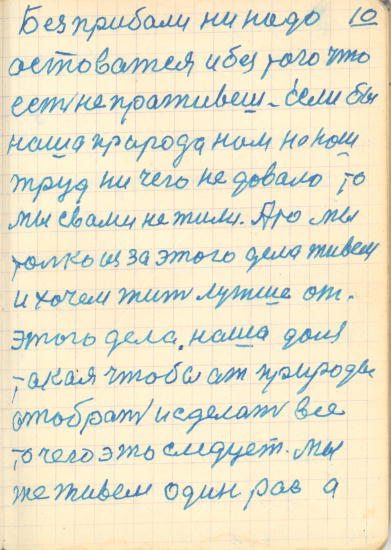 Без прибали ни надо 10
астоватся и без того что
есть не праживеш. Если бы
наша природа нам на наш
труд ни чего не довало то
мы свами не жили. Ато мы
толко из за этого дела живем
и хочем жит лутше от.
этого дела. наша доля
такая чтобы ат природы
отобрат и сделат все
то чего это следует. мы
же живем один раз а